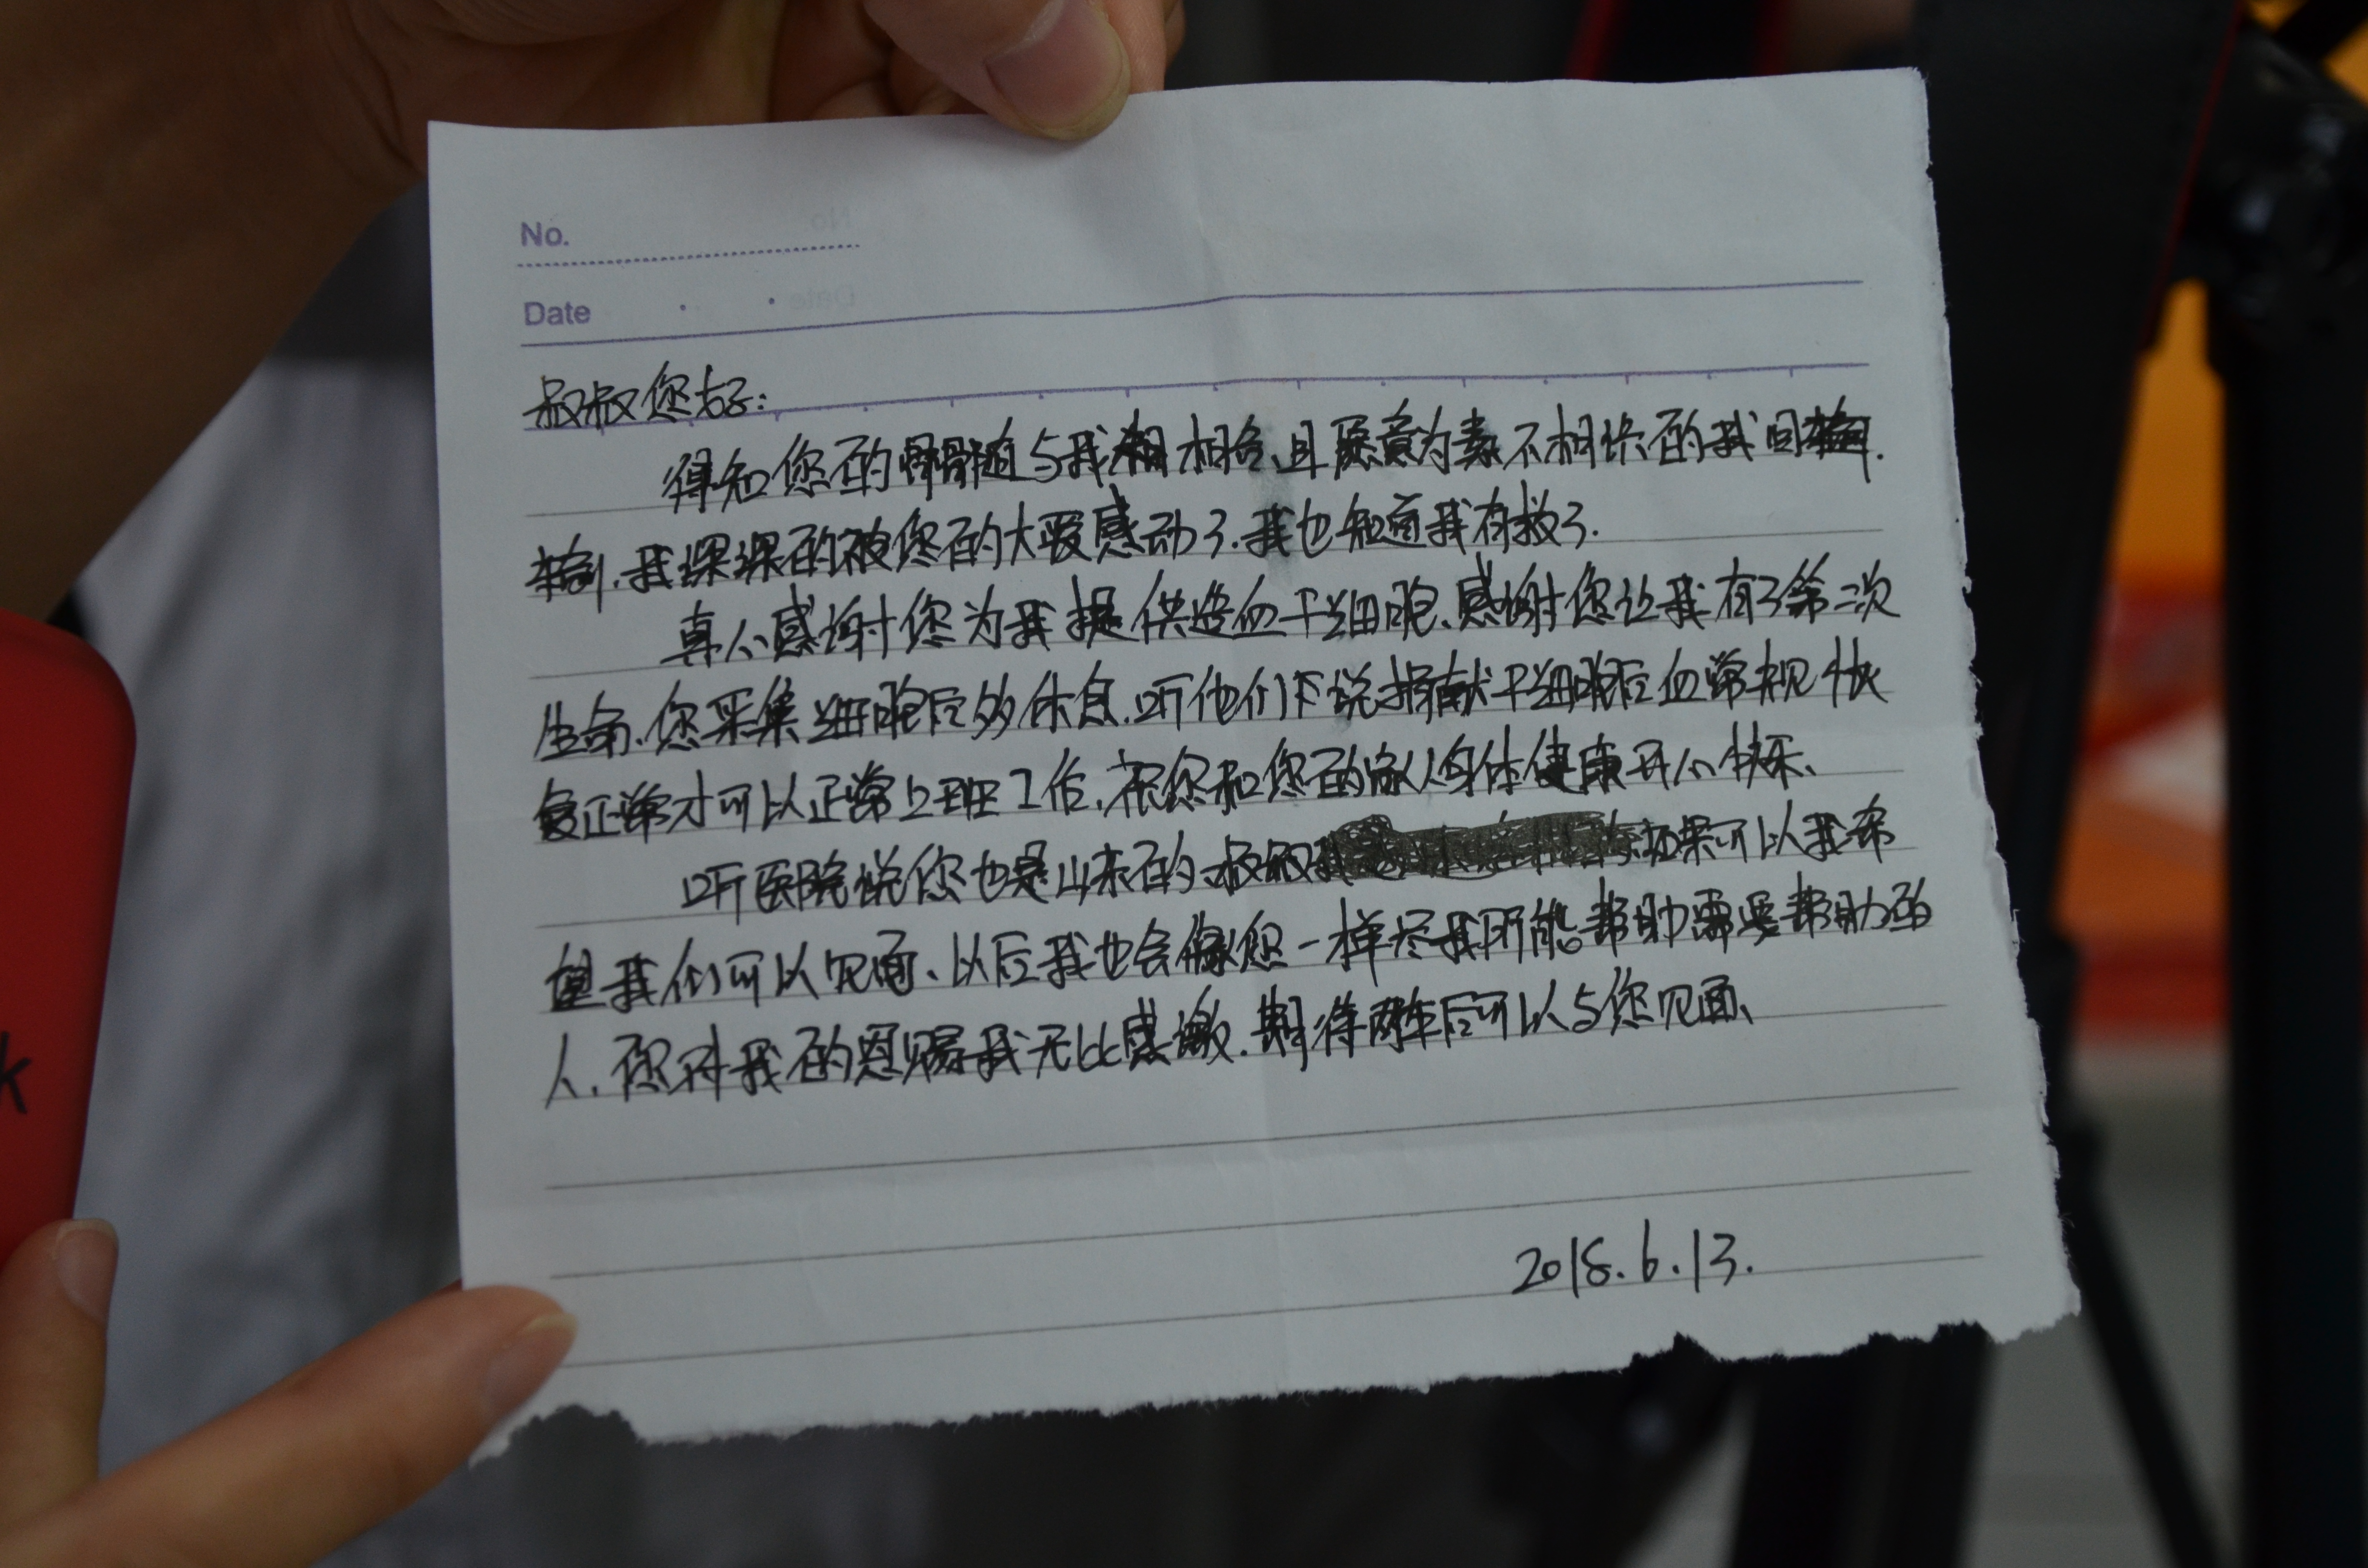 No.
Date
叔叔您好:
得知您的骨髓与我相相合、且愿意为素不相识的我回输.
输,我深深的被您的大爱感动了.我也知道我有救了.
真心感谢您为我提供造血干细胞、感谢您让我有了第二次
生命、您采集细胞后多休息.听他们说捐献干细胞后血常规恢
复正常才可以正常上班工作,祝您和您的家人身体健康开心快乐、
听医院说您也是山东的、叔叔如果可以我希
望我们可以见面、以后我也会像您一样尽我所能帮助需要帮助的
人、您对我的恩赐我无比感激.期待两年后可以与您见面、
2018.6.13.
k